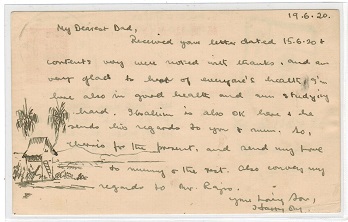 19.6.20.
My Dearest Dad,
Received your letter dated 15.6.20 &
contents very were noted with thanks, and am
very glad to hear of everyone's health, I'm
here also in good health and am studying
hard. is also OK here & he
sends his regards to you & mum. So,
cheerio for the present, and send my love
to mummy & the rest. Also convey my
regards to Mr.
Your loving Son,